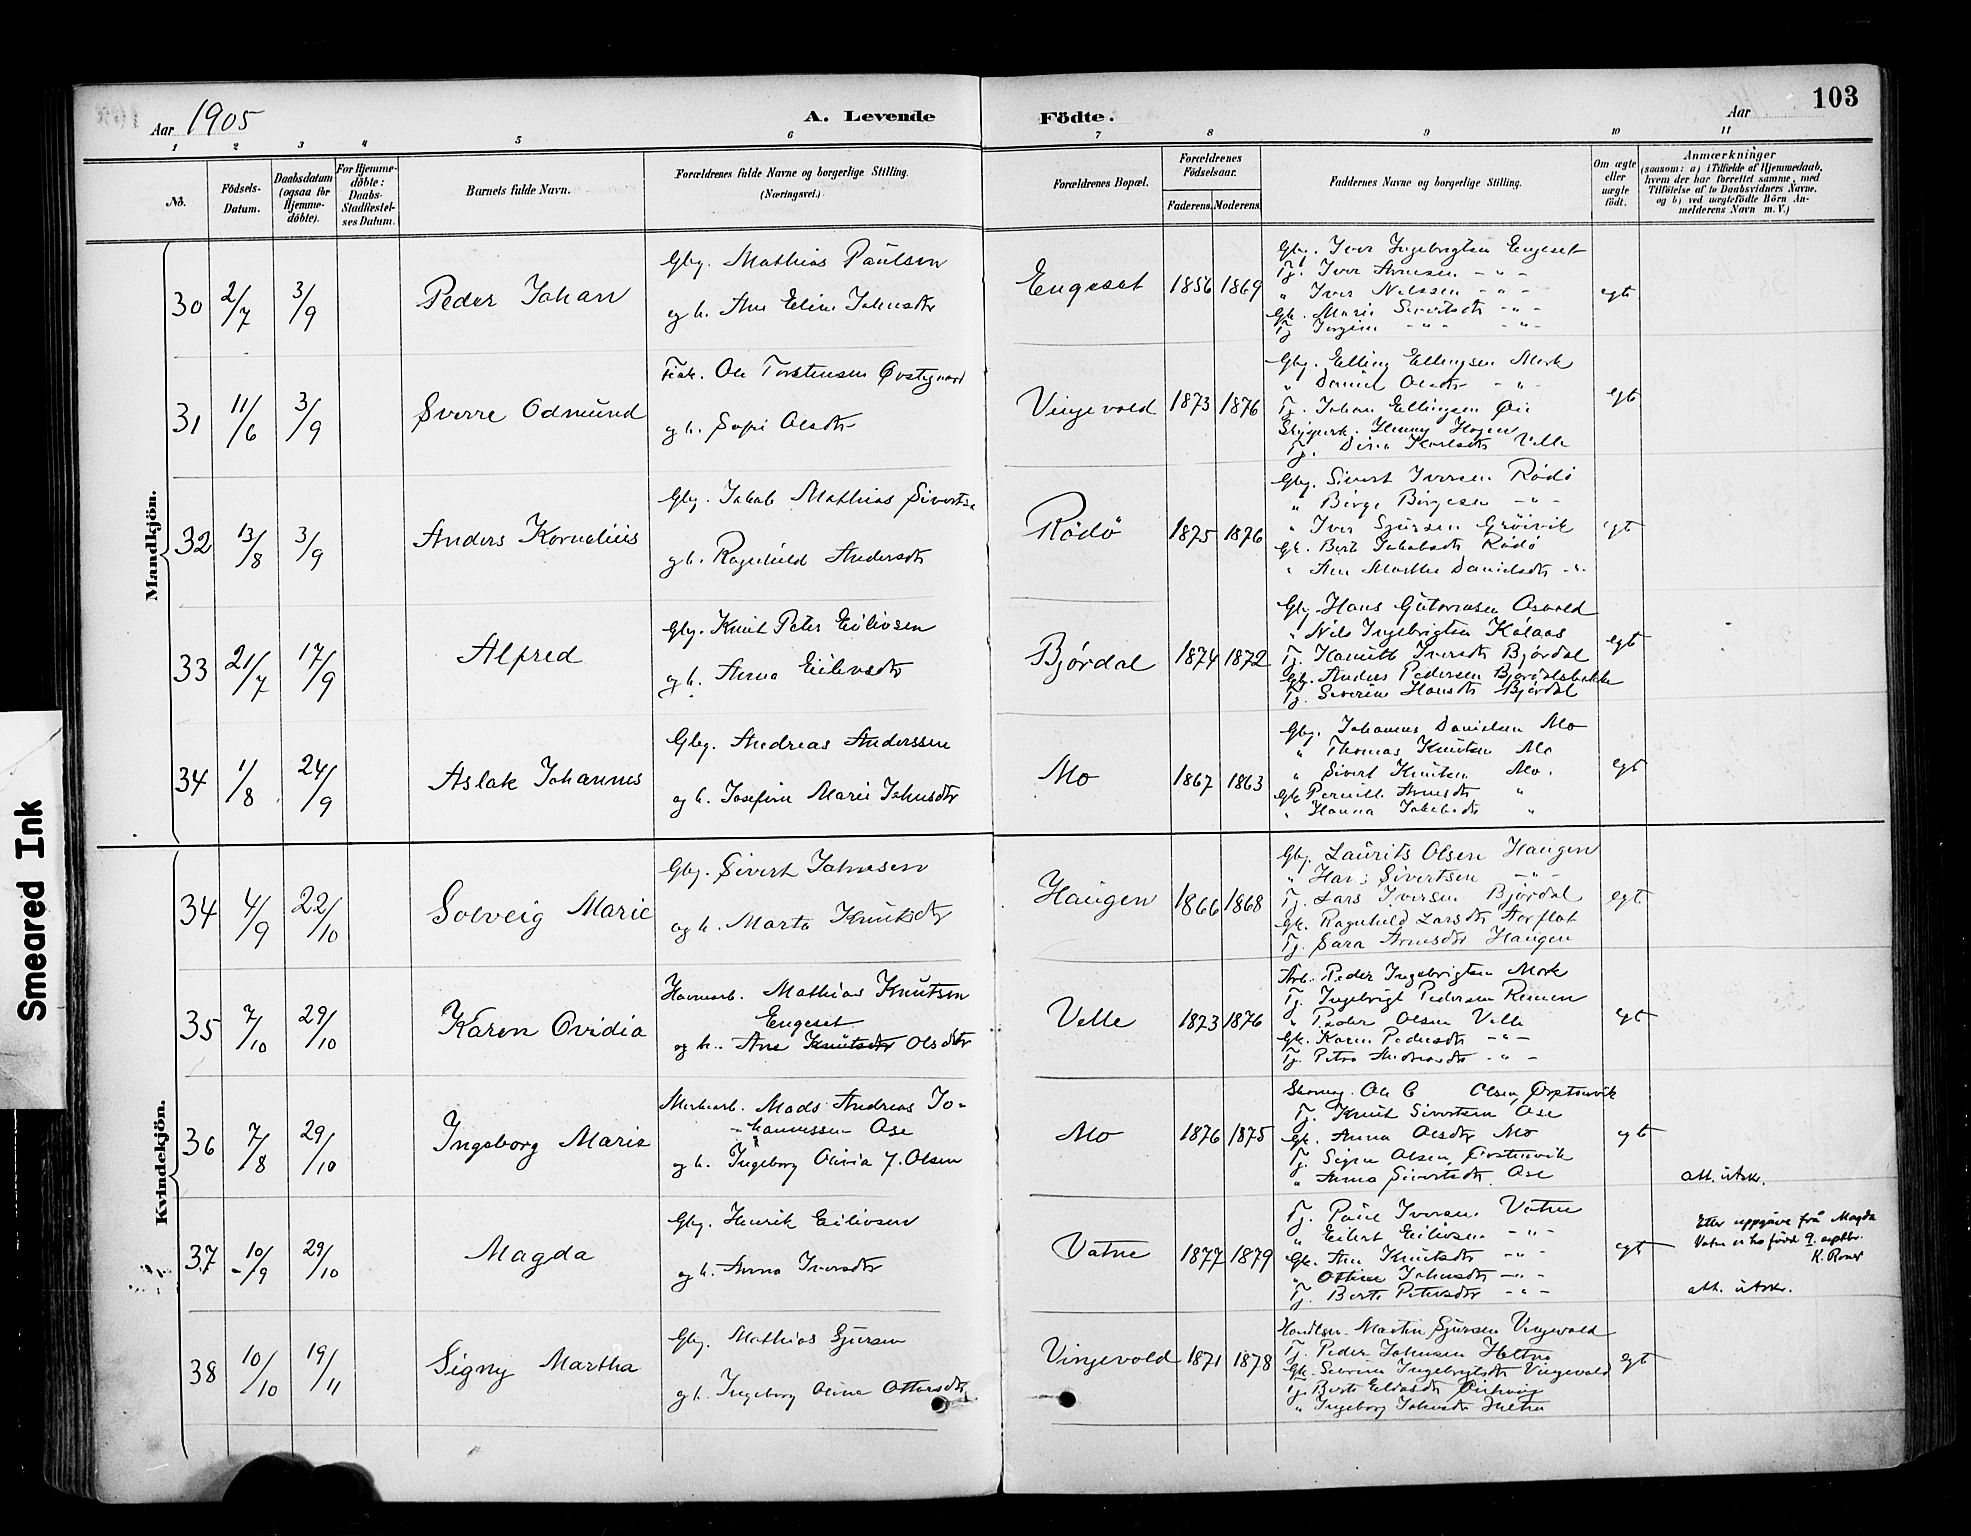 Aar 1905
A. Levende Födte.
Aar
103
1 2 3 4 5 6 7 8 9 10 11
No.
Födsels-Datum.
Daabsdatum (ogsaa for Hjemme-döbte).
For Hjemme-döbte: Daabs-Stadfæstel-ses Datum.
Barnets fulde Navn.
Forældrenes fulde Navne og borgerlige Stilling.
(Næringsvei.)
Forældrenes Bopæl.
Forældrenes Födselsaar.
Faderens. Moderens.
Faddernes Navne og borgerlige Stilling.
Om ægte eller uægte födt.
Anmærkninger
(saasom: a) i Tilfælde af Hjemmedaab,
hvem der har forrettet samme, med
Tilföielse af to Daabsvidners Navne,
og b) ved uægtefödte Börn An-
melderens Navn m. V.)
Mandkjön.
30 2/7 3/9 Peder Johan
Gbg. Mathias Paulsen
og h. Ane Eline Johnsdtr
Engeset 1856 1869
Gbg. Iver Ingebrigtsen Engeset
Tj. Iver Arnesen - " -
" Iver Nilssen - " -
Gk. Marie Sivertsdtr - " -
Tj. - " - - " -
egte
31 11/6 3/9 Sverre Odmund
Fisk. Ole Torstensen Øvstegaard
og h. Sofie Olsdtr
Vingevold 1873 1876
Gbg. Elling Ellingsen Mork
" Daniel Olsdtr - " -
Tj. Johan Ellingsen Øie
Henny Hagen
Tj. Karlsdtr Velle
egte
32 13/8 3/9 Anders Kornelius
Gbg. Jakob Mathias Siverts.
og h. Ragnhild Andersdtr
Rødø 1875 1876
Gbg. Sivert Iversen Rødø
" Børge Børgesen - " -
" Iver Sjursen Grøivik
Gk. Berte Jakobsdtr Rødø
" Ane Marthe Danielsdtr - " -
egte
33 21/7 17/9 Alfred
Gbg. Knut Peter Eilivsen
og h. Anna Eilevsdtr
Bjørdal 1874 1872
Gbg. Hans Guttormsen Osvold
" Nils Ingebrigtsen Kolaas
Tj. Iversdtr Bjørdal
Gbg. Anders Pedersen Bjørdalsbakke
Tj. Severine Hansdtr Bjørdal
egte
34 1/8 24/9 Aslak Johannes
Gbg. Andreas Anderssen
og h. Josefine Marie Johnsdtr
Mo 1867 1863
Gbg. Johannes Danielsen Mo
" Thomas Knutsen Mo
" Sivert Knutsen Mo.
Gk. Pernille Arnesdtr "
" Hanna Jakobsdtr "
egte
Kvindekjön.
34 4/9 22/10 Solveig Marie
Gbg. Sivert Johnsen
og h. Marta Knutsdtr
Haugen 1866 1868
Gbg. Laurits Olsen Haugen
" Hans Sivertsen - " -
Tj. Lars Iversen Bjørdal
Gk. Ragnhild Larsdtr Aarflot
Tj. Sara Arnesdtr Haugen
egte
35 7/10 29/10 Karen Ovidia
Havnearb. Mathias Knutsen
Engeset
og h. Ane Knutsdtr Olsdtr
Velle 1873 1876
Arb. Peder Ingebrigtsen Mork
Tj. Ingebrigt Pedersen Remen
" Peder Olsen Velle
Gk. Karen Pedersdtr - " -
Tj. Petra Andreasdtr - " -
egte
36 7/8 29/10 Ingeborg Marie
Mads Andreas Jo-
-hannessen Ose
og h. Ingeborg Olivia J. Olsen
Mo 1876 1875
Skomag. Ole C Olsen, Ørstenvik
Tj. Knut Sivertsen Ose
Gk. Anna Olsdtr Mo
Tj. Signe Olsen, Ørstenvik
" Anna Sivertsdtr. Ose
egte
att. utskr.
37 10/9 29/10 Magda
Gbg. Henrik Eilivsen
og h. Anna Iversdtr
Vatne 1877 1879
Tj. Paul Iversen Vatne
" Eilert Eilivsen - " -
Gk. Ane Knutsdtr - " -
" Othine Johnsdtr - " -
Tj. Berte Petersdtr - " -
egte
Etter uppgåve frå Magda
Vatne er ho född 9. septbr.
att. utskr.
38 10/10 19/11 Signy Martha
Gbg. Mathias Sjursen
og h. Ingeborg Oline Ottarsdtr
Vingevold 1871 1878
Handlsm. Martin Sjursen Vingevold
Tj. Peder Johnsen Heltne
Gk. Severine Ingebrigtsdtr Vingevold
Tj. Berte
" Ingeborg Johnsdtr Heltne
egte
Smeared Ink